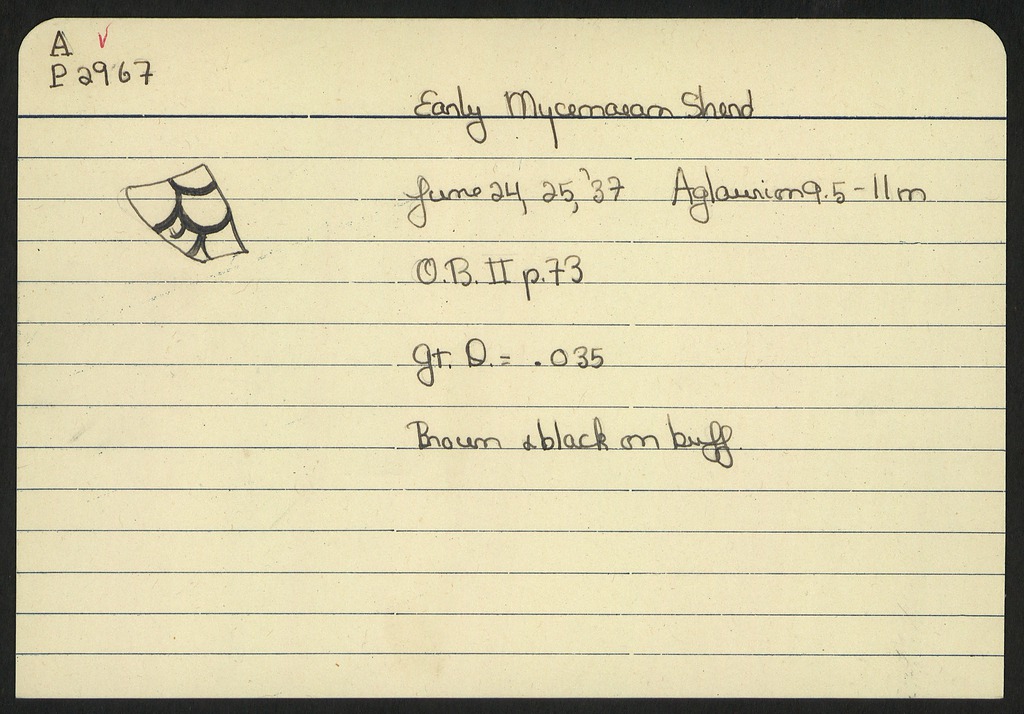 A ✓
P 2967
Early Mycenaean Sherd
June 24, 25, '37 Aglaurion 9.5-11m
O.B. II p.73
gt. D. = .035
Brown & black on buff.